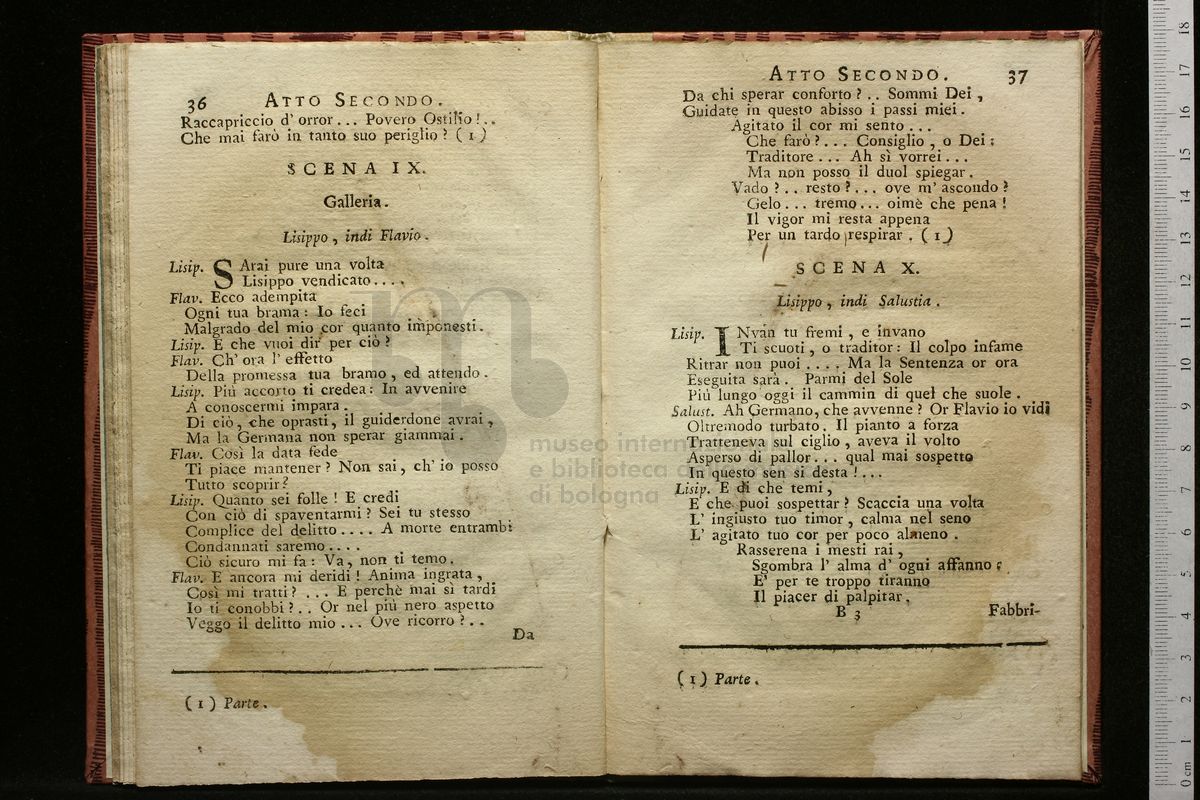 36 ATTO SECONDO.
Raccapriccio d' orror... Povero Ostilio!..
Che mai farò in tanto suo periglio? (1)
SCENA IX.
Galleria.
Lisippo, indi Flavio.
Lisip. SArai pure una volta
Lisippo vendicato....
Flav. Ecco adempita
Ogni tua brama: Io feci
Malgrado del mio cor quanto imponesti.
Lisip. E che vuoi dir per ciò?
Flav. Ch' ora l' effetto
Della promessa tua bramo, ed attendo.
Lisip. Più accorto ti credea: In avvenire
A conoscermi impara.
Di ciò, che oprasti, il guiderdone avrai,
Ma la Germana non sperar giammai.
Flav. Così la data fede
Ti piace mantener? Non sai, ch' io posso
Tutto scoprir?
Lisip. Quanto sei folle! E credi
Con ciò di spaventarmi? Sei tu stesso
Complice del delitto.... A morte entrambi
Condannati saremo....
Ciò sicuro mi fa: Va, non ti temo.
Flav. E ancora mi deridi! Anima ingrata,
Così mi tratti? ... E perchè mai sì tardi
Io ti conobbi?.. Or nel più nero aspetto
Veggo il delitto mio... Ove ricorro?..
Da
(1) Parte.
ATTO SECONDO. 37
Da chi sperar conforto?.. Sommi Dei,
Guidate in questo abisso i passi miei.
Agitato il cor mi sento...
Che farò?... Consiglio, o Dei:
Traditore... Ah sì vorrei...
Ma non posso il duol spiegar.
Vado?.. resto?... ove m' ascondo?
Gelo... tremo... oimè che pena!
Il vigor mi resta appena
Per un tardo respirar. (1)
SCENA X.
Lisippo, indi Salustia.
Lisip. INvan tu fremi, e invano
Ti scuoti, o traditor: Il colpo infame
Ritrar non puoi.... Ma la Sentenza or ora
Eseguita sarà. Parmi del Sole
Più lungo oggi il cammin di quel che suole.
Salust. Ah Germano, che avvenne? Or Flavio io vidi
Oltremodo turbato. Il pianto a forza
Tratteneva sul ciglio, aveva il volto
Asperso di pallor... qual mai sospetto
In questo sen si desta!...
Lisip. E di che temi,
E che puoi sospettar? Scaccia una volta
L' ingiusto tuo timor, calma nel seno
L' agitato tuo cor per poco almeno.
Rasserena i mesti rai,
Sgombra l' alma d' ogni affanno:
E' per te troppo tiranno
Il piacer di palpitar.
B 3 Fabbri-
(1) Parte.
museo intern
e biblioteca
di bologna
0 cm 1 2 3 4 5 6 7 8 9 10 11 12 13 14 15 16 17 18